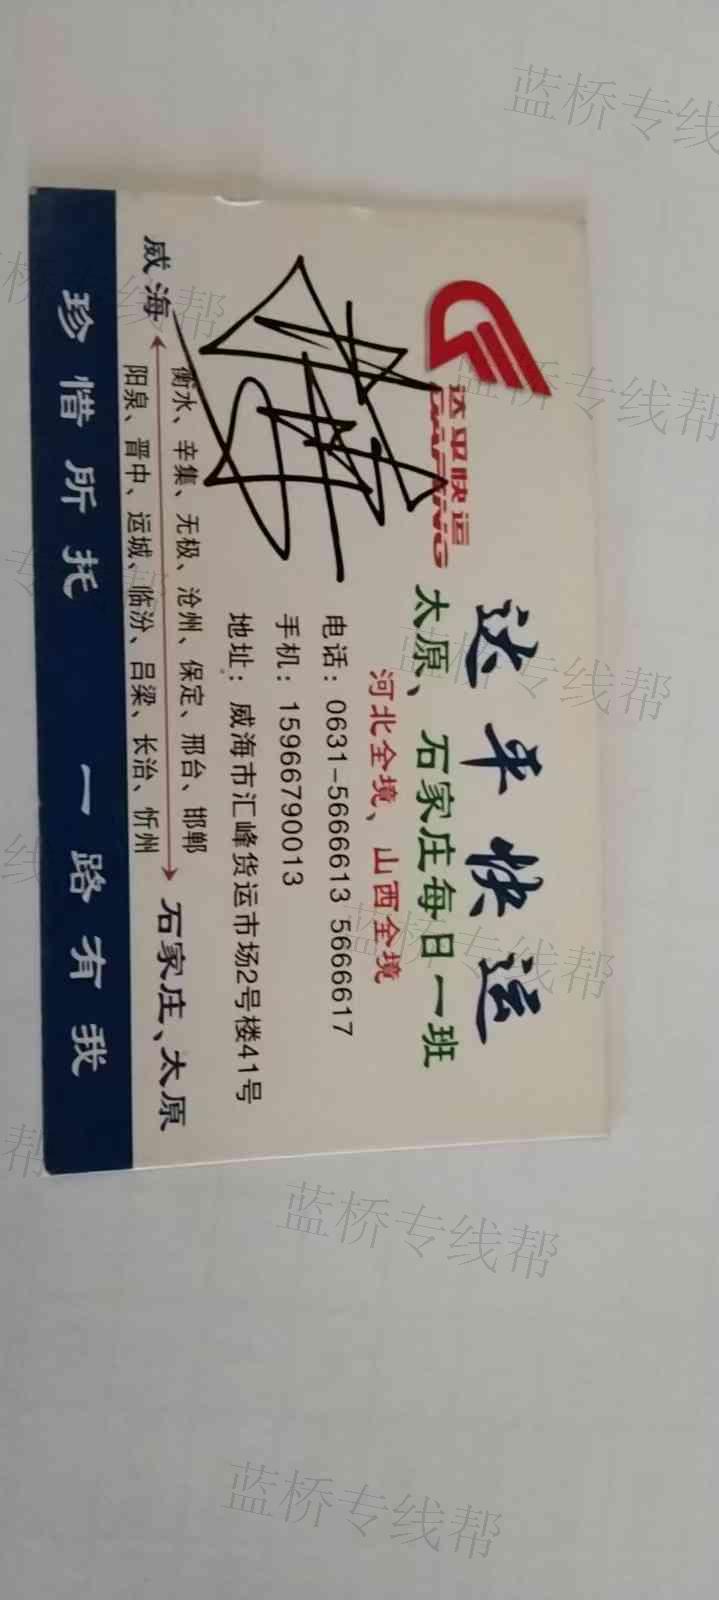 达平快运
DAPING
达平快运
太原、石家庄每日一班
河北全境、山西全境
电话：0631-5666613 5666617
手机：15966790013
地址：威海市汇峰货运市场2号楼41号
衡水、辛集、无极、沧州、保定、邢台、邯郸
威海 石家庄、太原
阳泉、晋中、运城、临汾、吕梁、长治、忻州
珍惜所托 一路有我
蓝桥专线帮